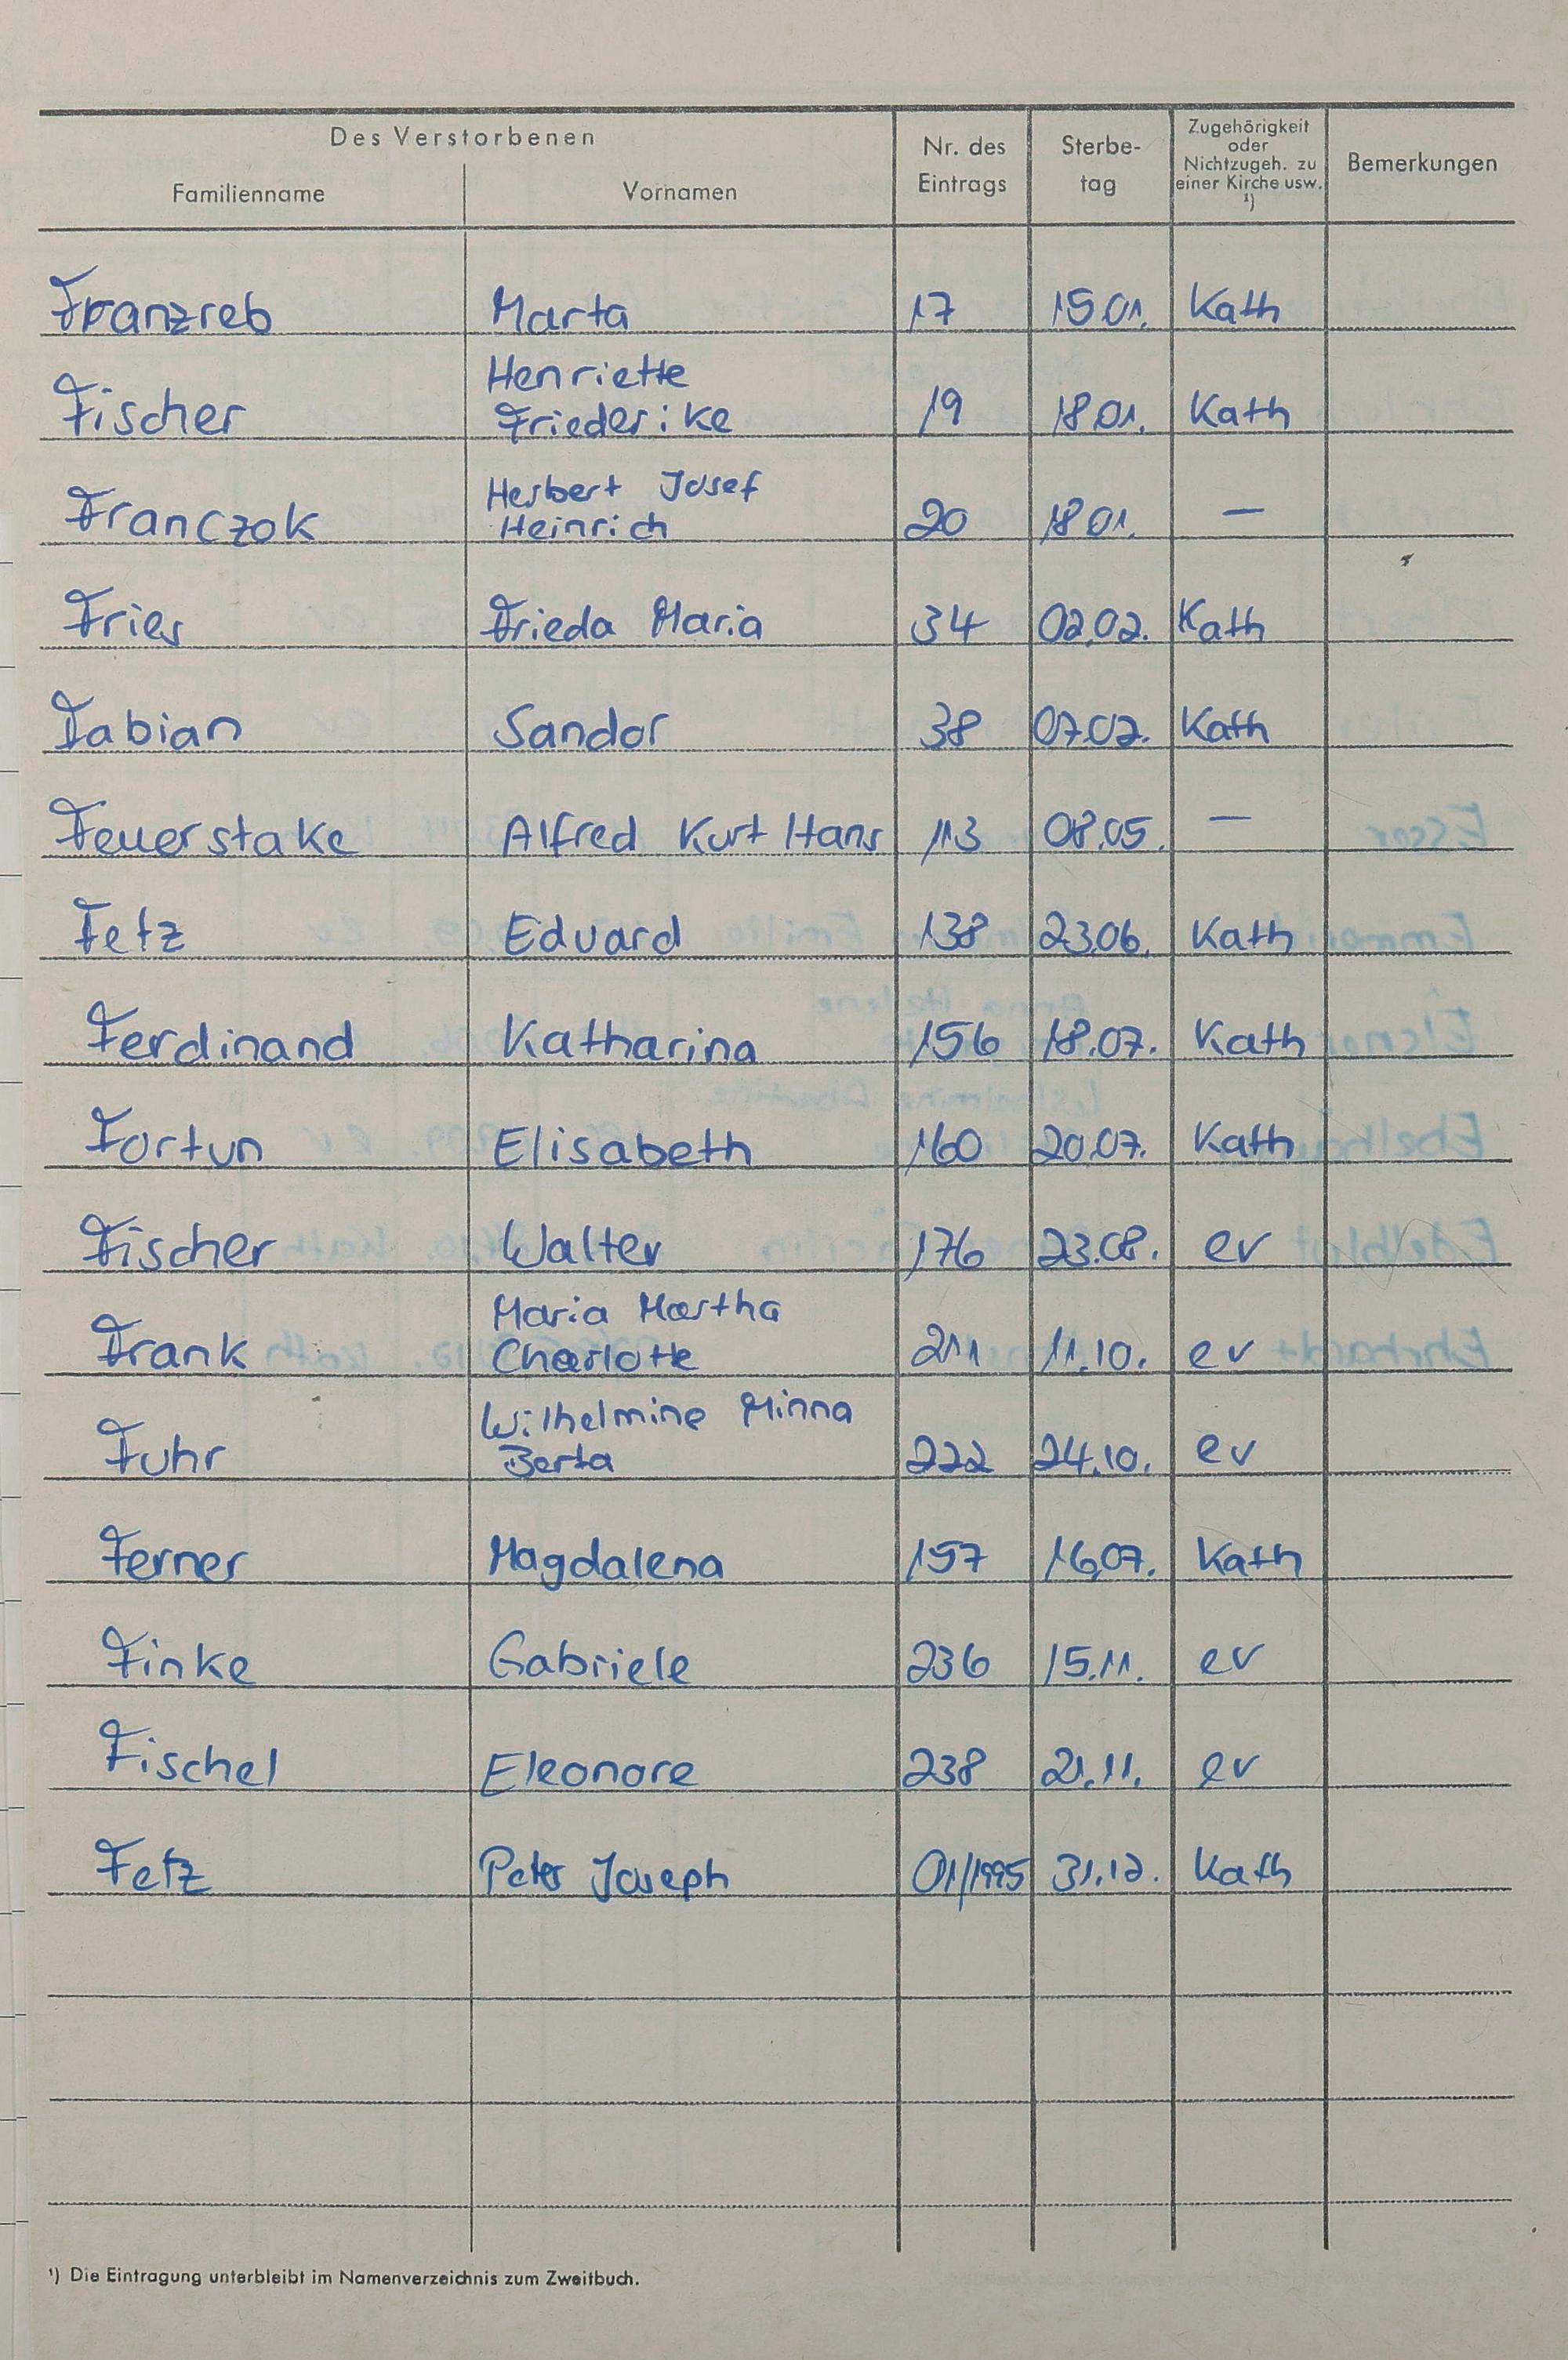 Des Verstorbenen
Familienname Vornamen Nr. des Eintrags Sterbe- tag Zugehörigkeit oder Nichtzugeh. zu einer Kirche usw. ¹) Bemerkungen
Franzreb Marta 17 15.01. Kath
Henriette
Fischer Friederike 19 18.01. Kath
Herbert Josef
Franczok Heinrich 20 18.01. —
Fries Frieda Maria 34 02.02. Kath
Fabian Sandor 38 07.02. Kath
Feuerstake Alfred Kurt Hans 113 08.05. —
Fetz Eduard 138 23.06. Kath
Ferdinand Katharina 156 18.07. Kath
Fortun Elisabeth 160 20.07. Kath
Fischer Walter 176 23.08. ev
Maria Martha
Frank Charlotte 211 11.10. ev
Wilhelmine Minna
Fuhr Berta 222 24.10. ev
Ferner Magdalena 157 16.07. Kath
Finke Gabriele 236 15.11. ev
Fischel Eleonore 238 21.11. ev
Fetz Peter Joseph 01/1995 31.12. Kath
¹) Die Eintragung unterbleibt im Namenverzeichnis zum Zweitbuch.